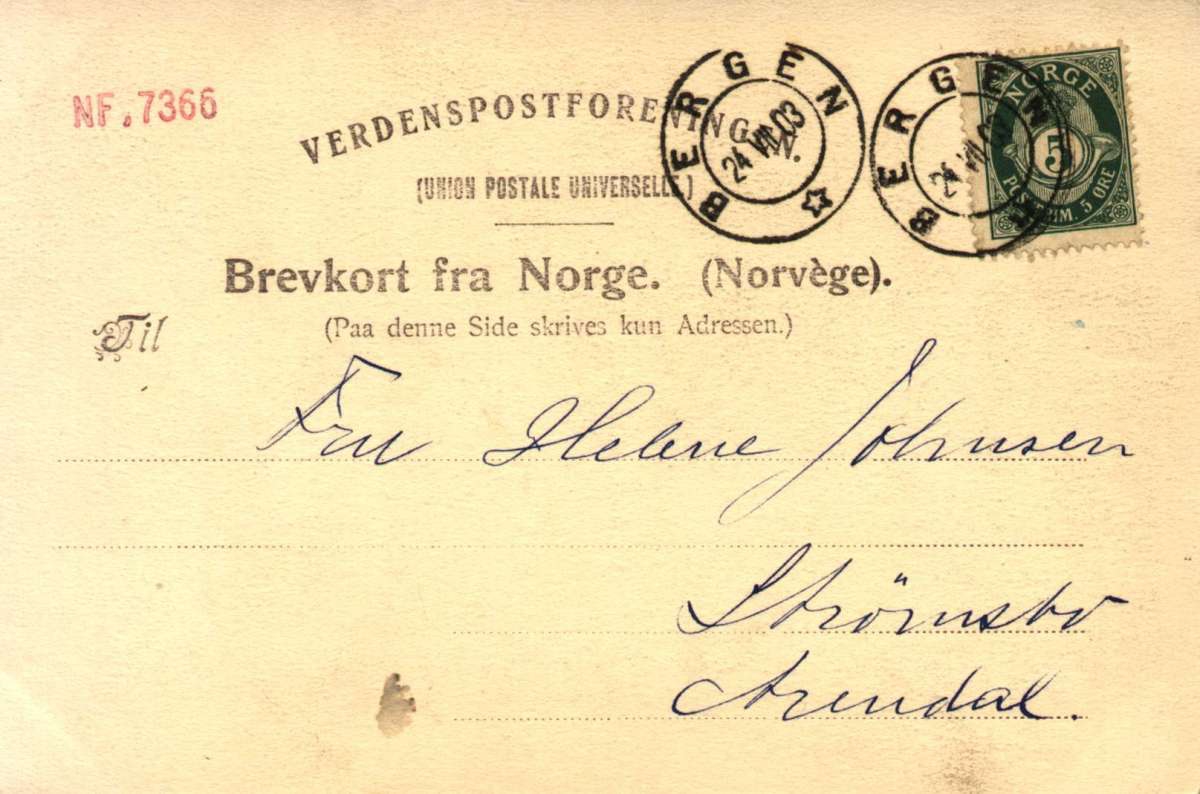 NF.7366
VERDENSPOSTFORENINGEN.
(UNION POSTALE UNIVERSELLE.)
BERGEN
24 VII 03
BERGEN
24 VII 03
NORGE
5
POSTFRIM. 5 ØRE
Brevkort fra Norge. (Norvège).
(Paa denne Side skrives kun Adressen.)
Til
Fru Helene Johnsen
Strömsbo
Arendal.